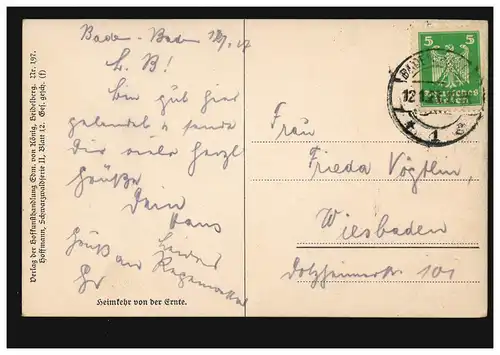 Verlag der Hofkunsthandlung Edm. von König, Heidelberg. Nr. 197.
Hoffmann, Schwarzwaldserie II, Blatt 12. Ges. gesch. (f)
Baden-Baden 12/1. 27
L. B!
Bin gut hier
gelandet & sende
Dir viele herzl
Grüße
Dein
Hans
Gruß an
Leider
Regenwetter
Heimkehr von der Ernte.
5 5
Deutsches
Reich
BADEN
12
* 1
Frau
Frieda Vögtlin,
Wiesbaden
Dotzheimerstr 101